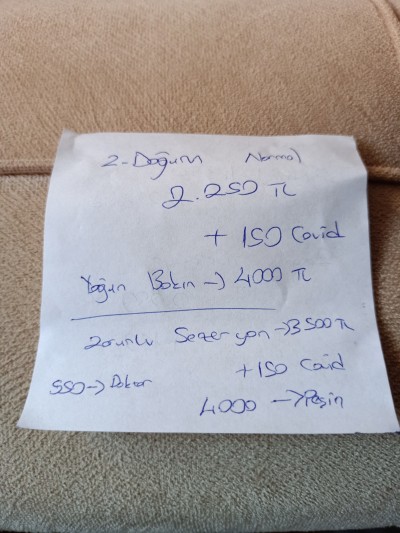 2-Doğum Normal
2.250 TL
+ 150 Covid
Yoğun Bakın → 4000 TL
Zorunlu Sezeryon → 3500 TL
+150 Covid
550 → Doktor
4000 → Peşin